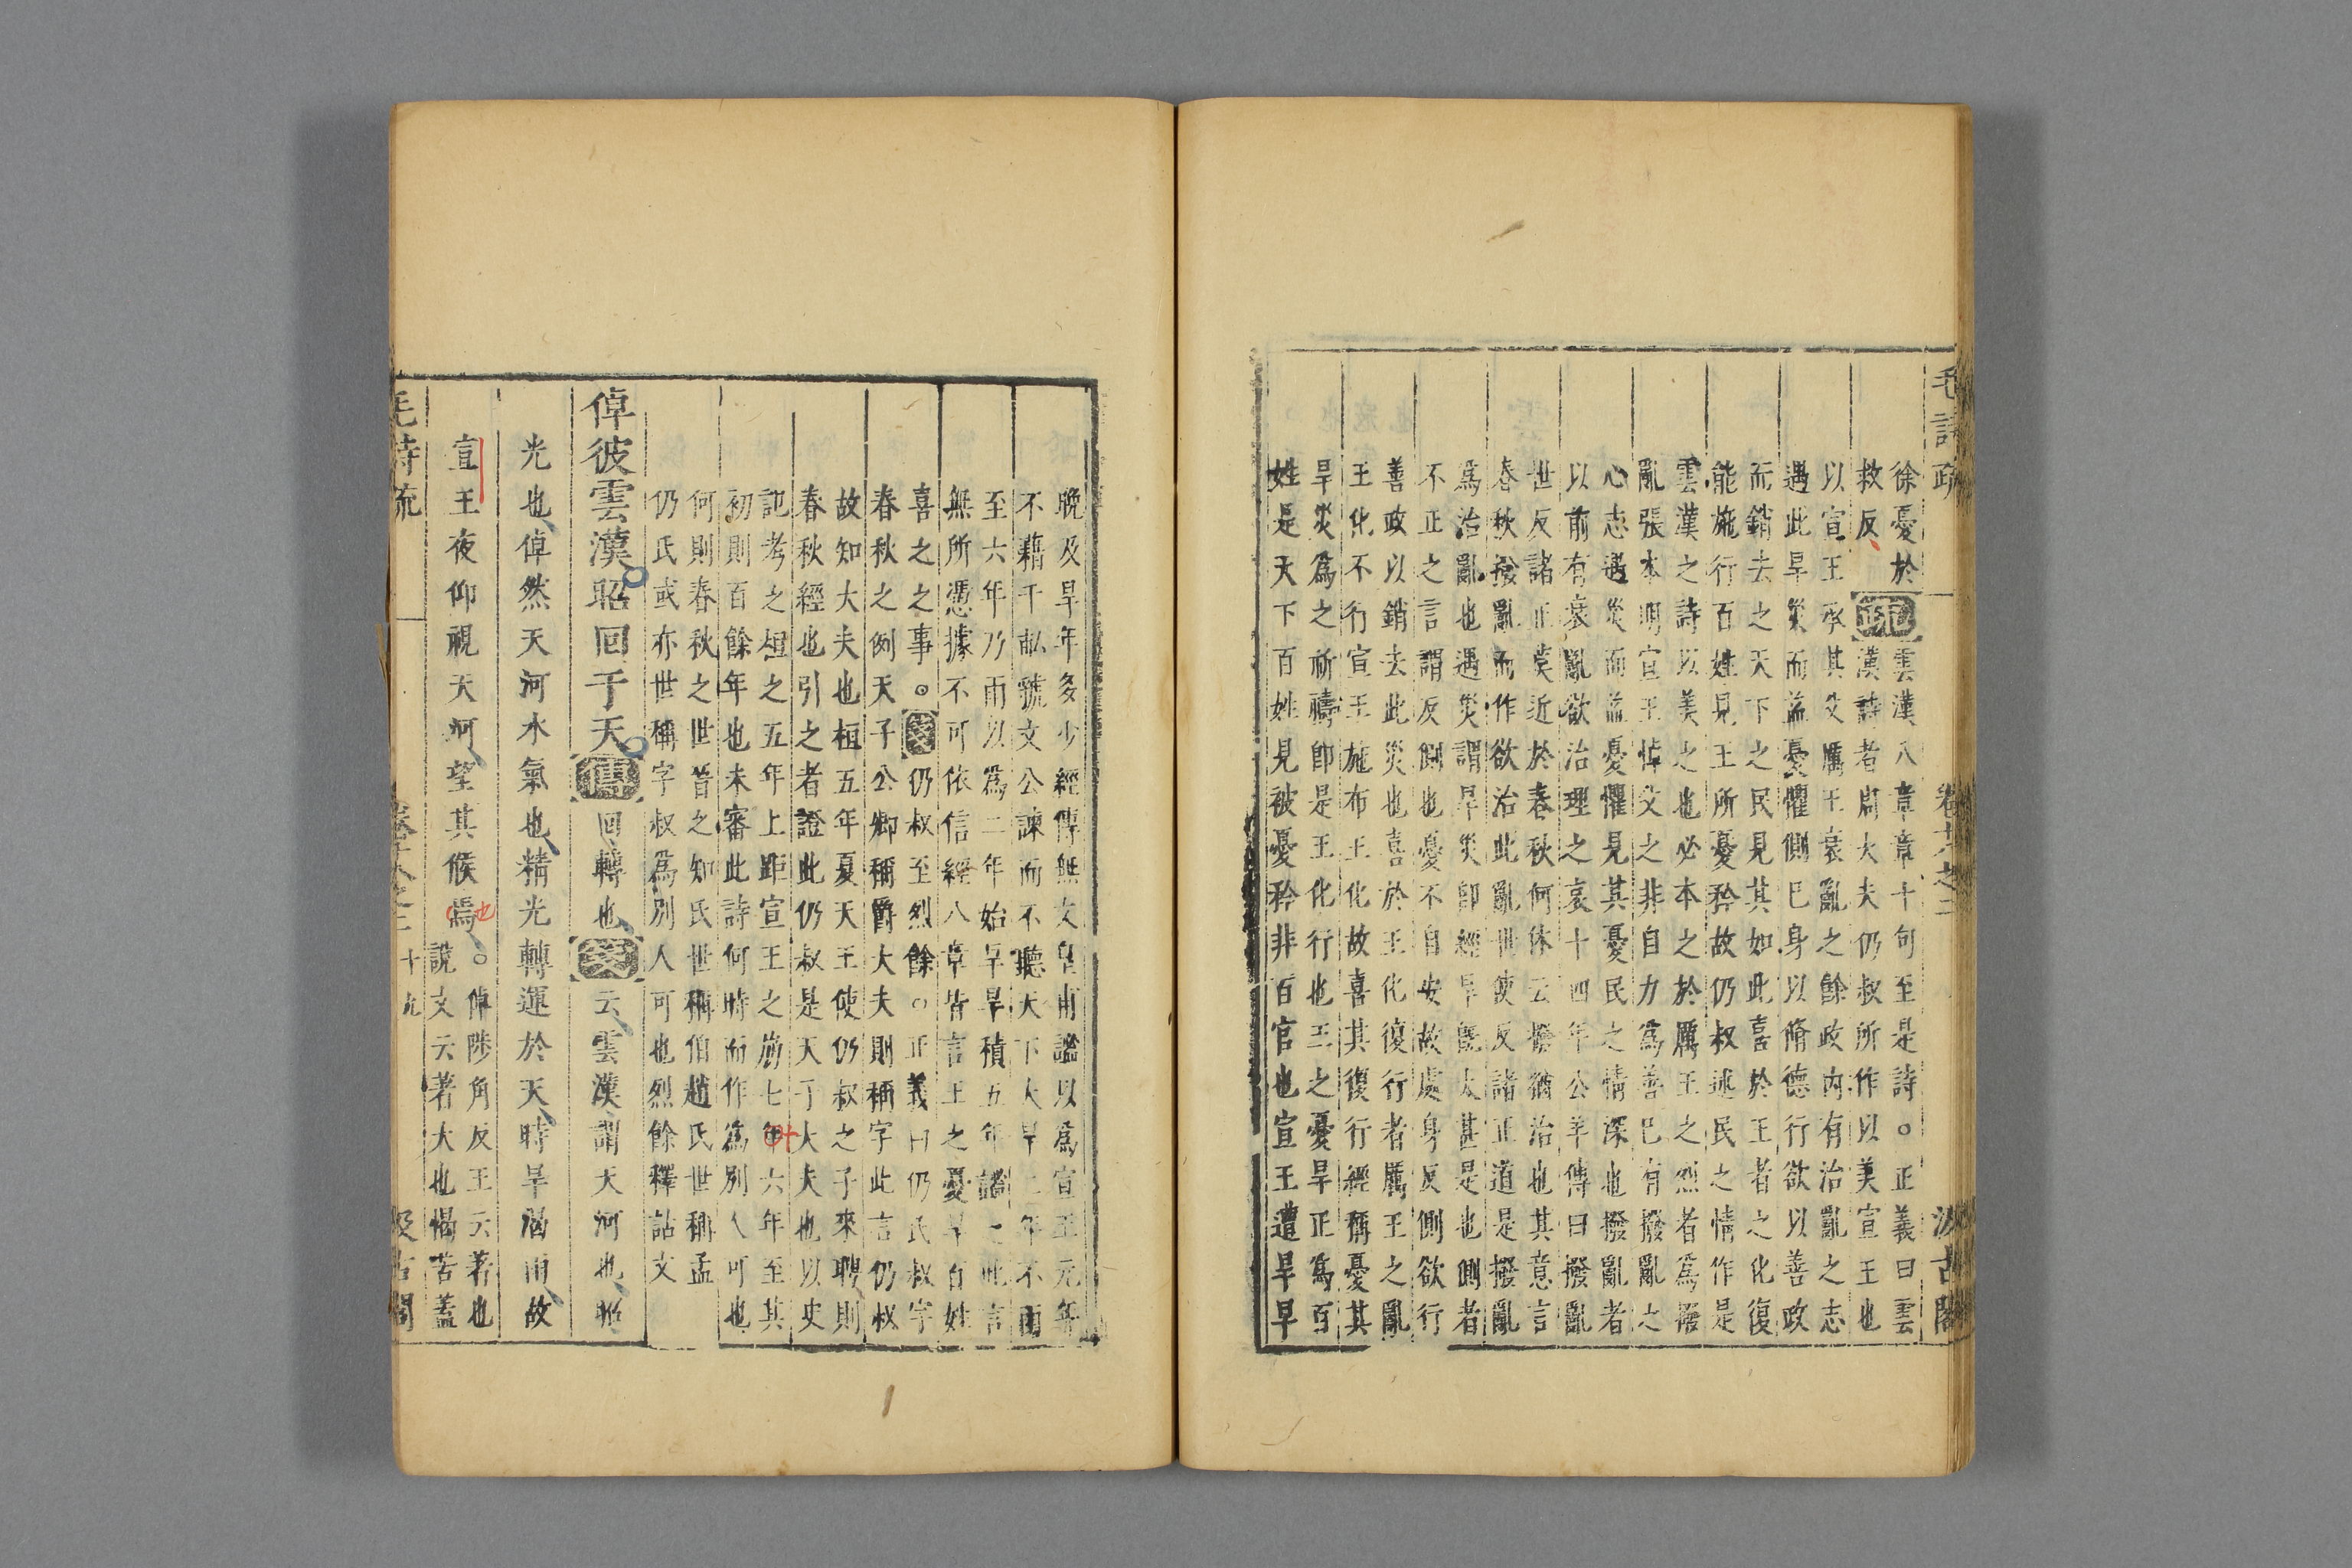 毛詩疏 卷十八之二 汲古閣
徐憂於
救反
疏
雲漢八章章十句至是詩○正義曰雲
漢詩者周大夫仍叔所作以美宣王也
以宣王承其父厲王衰亂之餘政內有治亂之志
遇此旱災而益憂懼側已身以脩德行欲以善政
而銷去之天下之民見其如此喜於王者之化復
能施行百姓見王所憂矜故仍叔述民之情作是
雲漢之詩以美之也必本之於厲王之烈者為撥
亂張本明宣王悼父之非自力為善已有撥亂之
心志遇災而益憂懼見其憂民之情深也撥亂者
以前有衰亂欲治理之哀十四年公羊傳曰撥亂
世反諸正莫近於春秋何休云撥猶治也其意言
春秋撥亂而作欲治此亂世使反諸正道是撥亂
為治亂也遇災謂旱災即經旱旣太甚是也側者
不正之言謂反側也憂不自安故處身反側欲行
善政以銷去此災也喜於王化復行者厲王之亂
王化不行宣王施布王化故喜其復行經稱憂其
旱災為之祈禱即是王化行也王之憂旱正為百
姓是天下百姓見被憂矜非百官也宣王遭旱早
晚及旱年多少經傳無文皇甫謐以為宣王元年
不藉千畝虢文公諫而不聽天下大旱二年不雨
至六年乃雨以為二年始旱旱積五年謐之此言
無所憑據不可依信經八章皆言王之憂旱百姓
喜之之事○箋仍叔至烈餘○正義曰仍氏叔字
春秋之例天子公卿稱爵大夫則稱字此言仍叔
故知大夫也桓五年夏天王使仍叔之子來聘則
春秋經也引之者證此仍叔是天子大夫也以史
記考之桓之五年上距宣王之崩七年六年至其
初則百餘年也未審此詩何時而作為別人可也
何則春秋之世晉之知氏世稱伯趙氏世稱孟
仍氏或亦世稱字叔為別人可也烈餘釋詁文
倬彼雲漢昭回于天傳回轉也箋云雲漢謂天河也昭
光也倬然天河水氣也精光轉運於天時旱渴雨故
宣王夜仰視天河望其候焉也○倬陟角反王云著也
說文云著大也愒苦蓋
毛詩疏 卷十八之二 十九 汲古閣